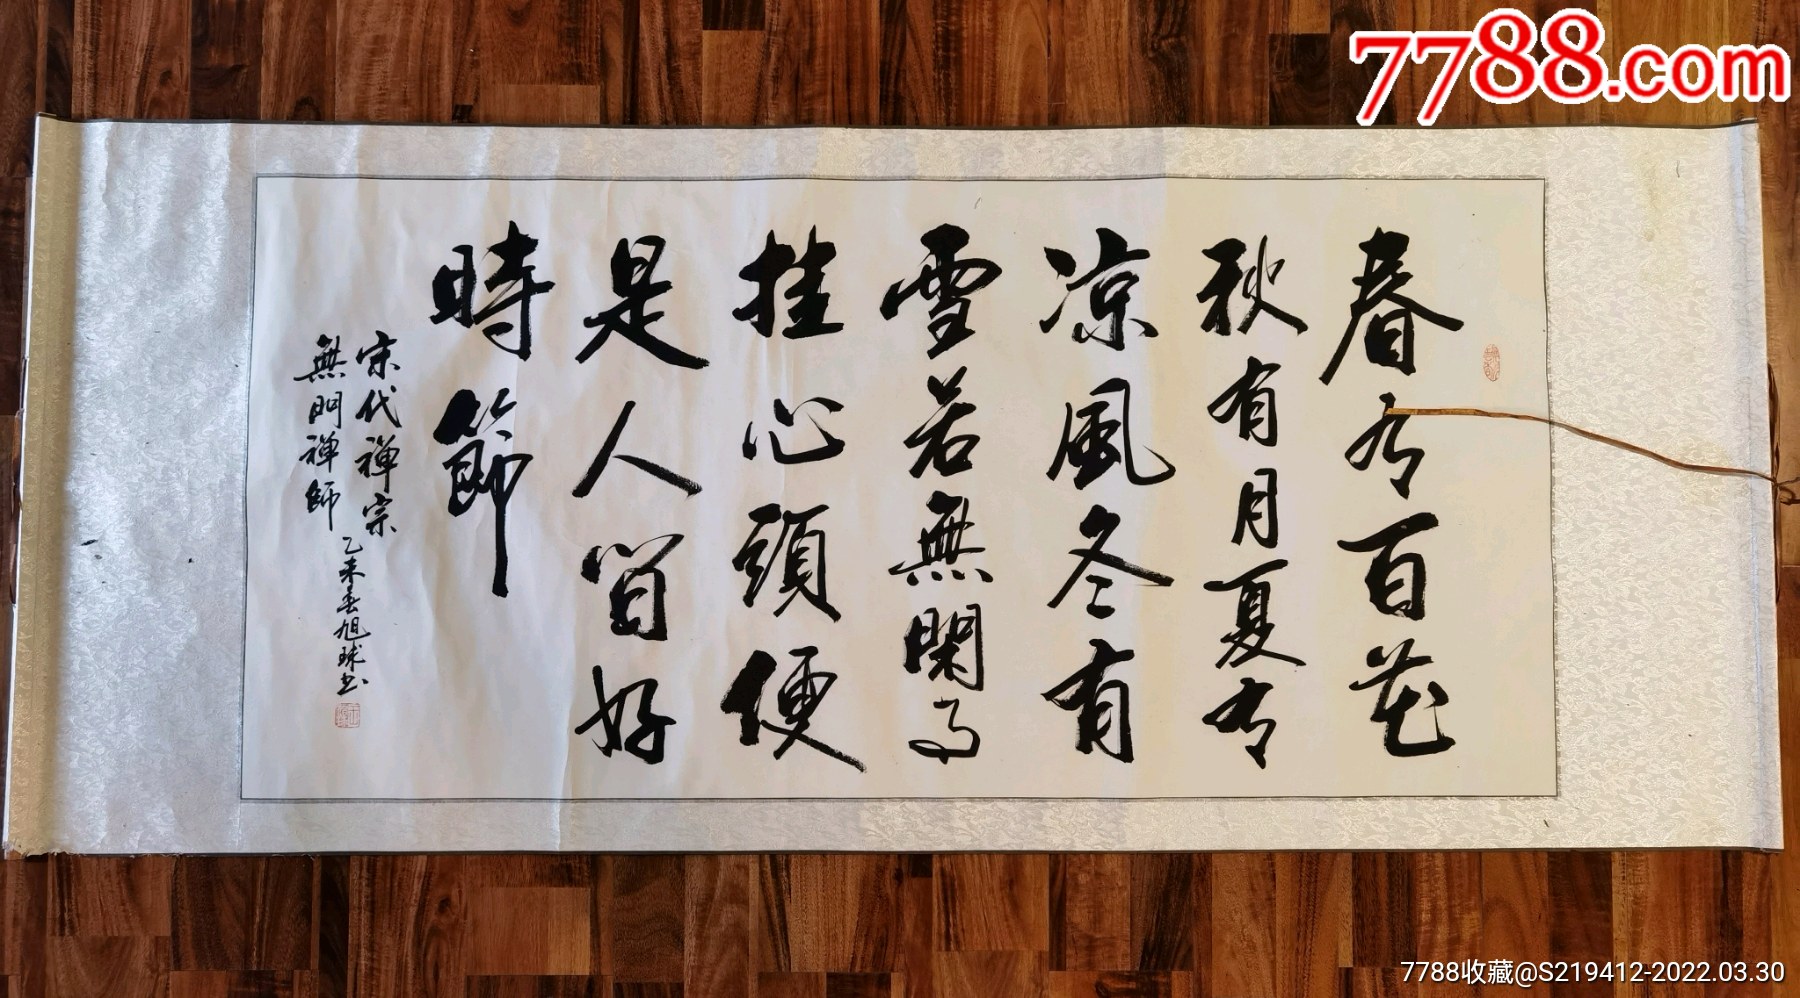 春有百花
秋有月夏有
凉風冬有
雪若無閑事
挂心頭便
是人间好
時節
宋代禅宗
無門禅師
乙未春旭球书
7788.com
7788收藏@S219412-2022.03.30